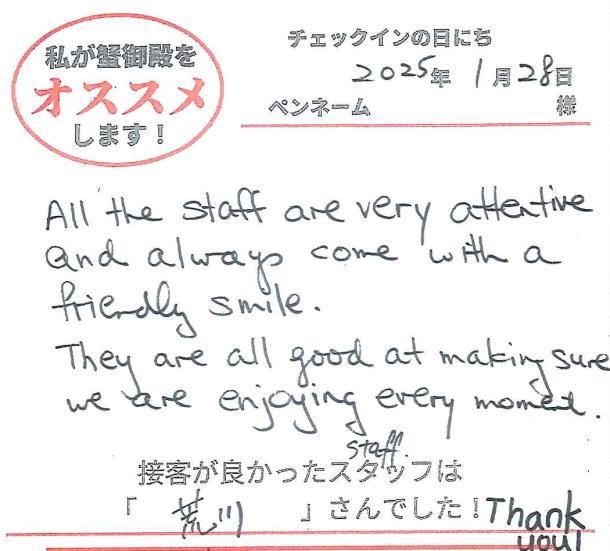 私が蟹御殿を
オススメ
します!
チェックインの日にち
2025年 1月28日
ペンネーム 様
All the staff are very attentive
and always come with a
friendly smile.
They are all good at making sure
we are enjoying every moment.
staff
接客が良かったスタッフは
「 荒川 」さんでした! Thank
you!